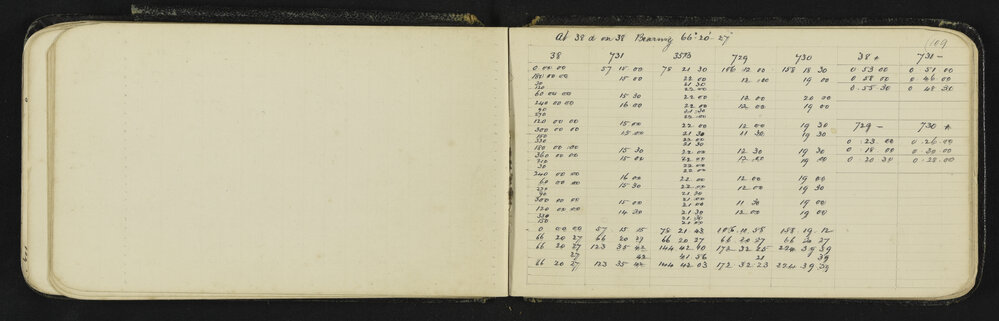 At 38 a on 38 Bearing 66° 20' 27"
109
38 731 35713 729 730 38 + 731 -
0 00 00 57 15 00 78 21 30 106 12 00 158 18 30 0 53 00 0 51 00
180 00 00 15 00 22 00 12 00 19 00 0 58 00 0 46 00
30 21 30 0 55 30 0 48 30
120 22 00
60 00 00 15 30 22 00 12 00 20 00
240 00 00 16 00 22 00 12 00 19 00
90
270 22 00
120 00 00 15 00 22 00 12 00 19 30 729 - 730 +
300 00 00 15 00 21 30 11 30 19 30
150 22 00 0 23 00 0 26 00
330 21 30
180 00 00 15 30 22 00 12 30 19 30 0 18 00 0 30 00
360 00 00 15 00 22 00 12 00 19 00 0 20 30 0 28 00
210
30 22 00
240 00 00 16 00 22 00 12 00 19 00
60 00 00 15 30 22 00 12 00 19 30
270
90 21 30
300 00 00 15 00 21 00 11 30 19 00
120 00 00 14 30 21 30 12 00 19 00
330 21 30
150 21 00
0 00 00 57 15 15 78 21 43 106 11 58 158 19 12
66 20 27 66 20 27 66 20 27 66 20 27 66 20 27
66 20 27 123 35 42 144 42 10 172 32 25 224 39 39
27 42 41 56 21 39
66 20 27 123 35 42 144 42 03 172 32 23 224 39 39